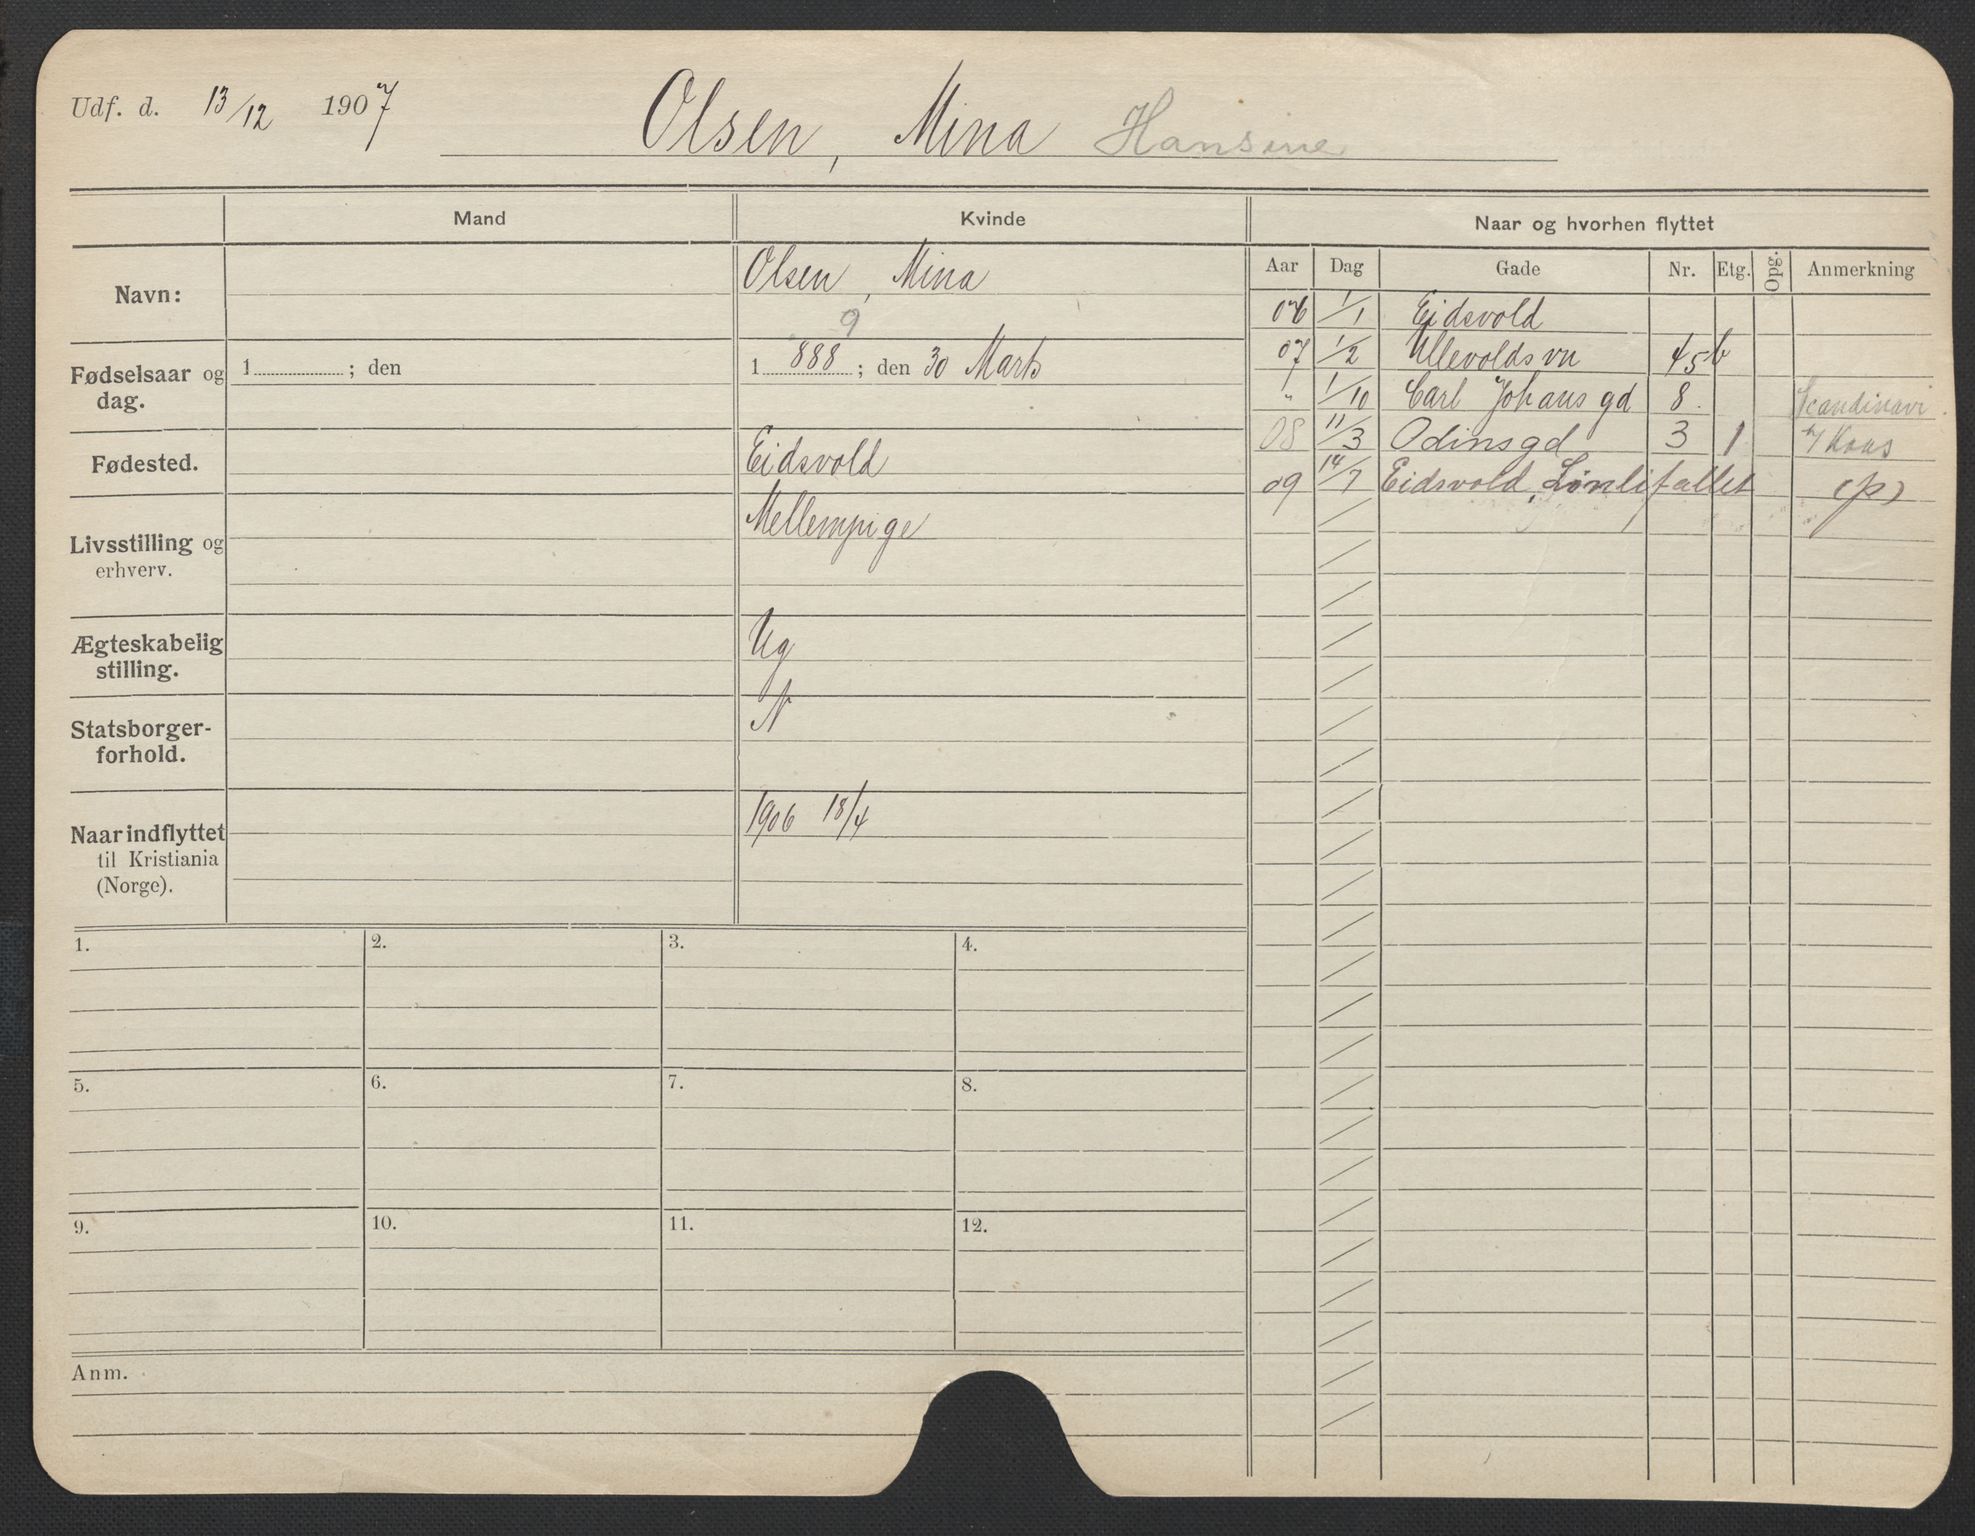 Udf. d. 13/12 1907
Olsen, Mina Hansine
Mand Kvinde Naar og hvorhen flyttet
Aar Dag Gade Nr. Etg. Opg. Anmerkning
Navn: Olsen, Mina
9
Fødselsaar og dag. 1 ; den 1 888 ; den 30 Marts
Fødested. Eidsvold
Livsstilling og erhverv. Mellempige
Ægteskabelig stilling. Ug
Statsborgerforhold. N
Naar indflyttet til Kristiania (Norge). 1906 18/4
06 1/1 Eidsvold
07 1/2 Ullevoldsvn 45 b
" 1/10 Carl Johans gd 8 Scandinavi.
08 11/3 Odinsgd 3 1 h/ Kaas
09 14/7 Eidsvold, Linlifallet (p)
1. 2. 3. 4.
5. 6. 7. 8.
9. 10. 11. 12.
Anm.